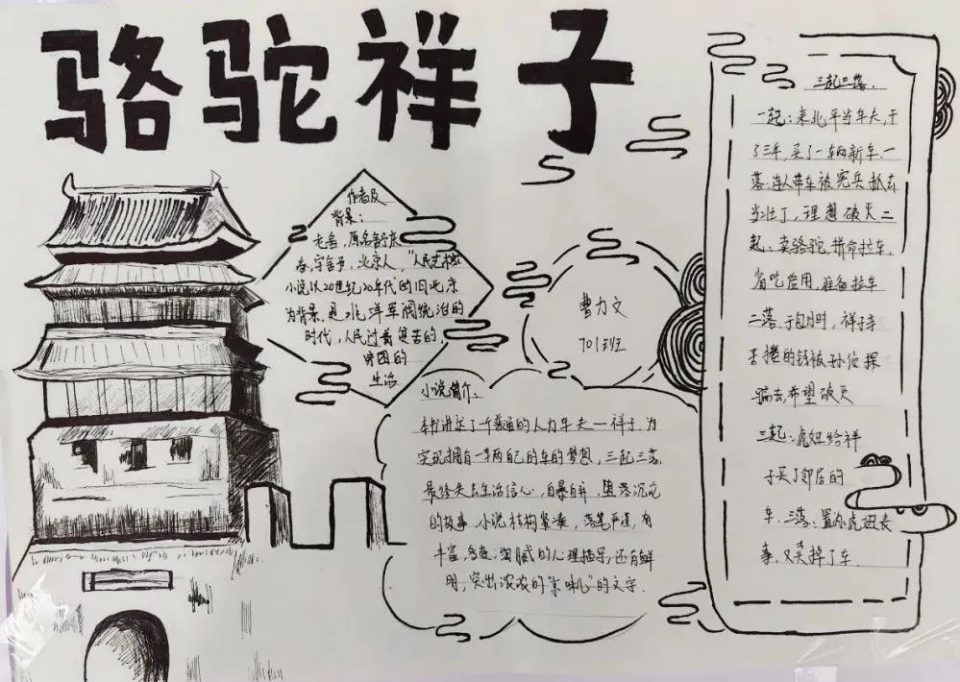 骆驼祥子
作者及
背景：
老舍，原名舒庆
春，字舍予，北京人，"人民艺术家
小说以20世纪20年代的旧北京
为背景，是北洋军阀统治的
时代，人民过着贫苦的，
穷困的
生活
曹力文
701班
小说简介：
本书讲述了一个普通的人力车夫—祥子，为
实现拥有一辆自己的车的梦想，三起三落，
最终失去生活信心，自暴自弃，堕落沉沦
的故事。小说结构紧凑，落笔严谨，有
丰富，多变，细腻的心理描写，还有鲜
明，突出浓浓的"京味儿"的文字.
三起三落.
一起：来北平当车夫，干
了三年，买了一辆新车、一
落：连人带车被宪兵抓去
当壮丁，理想破灭二
起、卖骆驼，拼命拉车，
省吃俭用，准备拉车
二落：干包月时，祥子辛
苦攒的钱被孙侦探
骗去，希望破灭
三起：虎妞给祥
子买了邻居的
车，三落：置办虎妞丧
事，又卖掉了车.